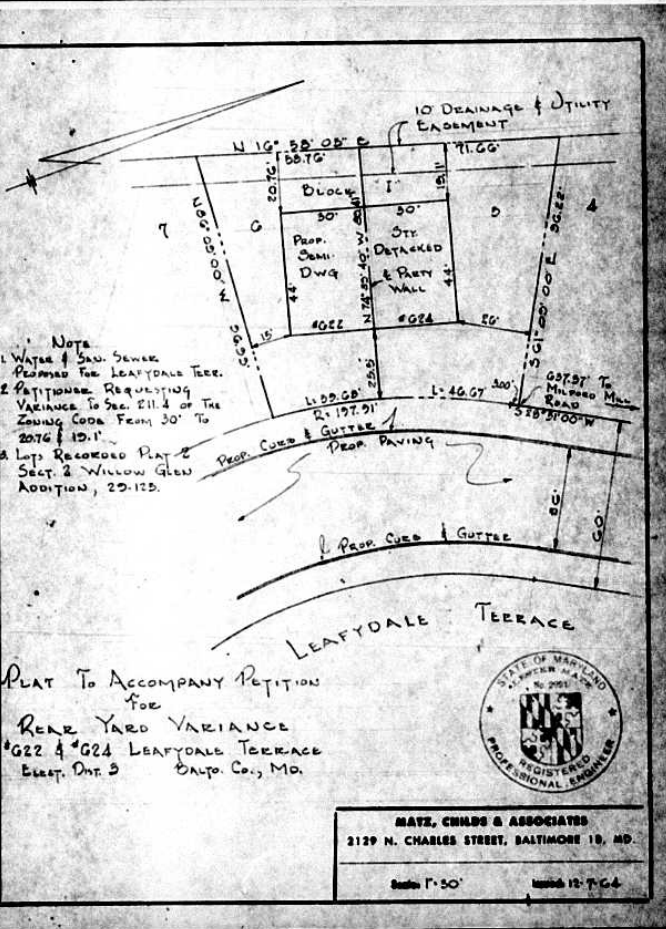 10' DRAINAGE & UTILITY
EASEMENT
N 16° 58' 05" E
58.76'
71.66'
20.76'
19.11'
BLOCK "I"
30'
30'
7
6
5
4
PROP.
SEMI-
DWG
STY.
DETACKED
& PARTY
WALL
44'
44'
#622
#624
15'
26'
25.5'
S 61° 00' 00" E
96.22'
L= 46.67
R= 197.91'
300'
637.97' TO
MILFORD MILL
ROAD
S 28° 51' 00" W
PROP. CURB & GUTTER
PROP. PAVING
36'
60'
PROP. CURB & GUTTER
LEAFYDALE TERRACE
NOTE
1. WATER & SAN. SEWER
PROPOSED FOR LEAFYDALE TERR.
2 PETITIONER REQUESTING
VARIANCE TO SEC. 211.4 OF THE
ZONING CODE FROM 30' TO
20.76 & 19.1'
3. LOTS RECORDED PLAT 2
SECT. 2 WILLOW GLEN
ADDITION, 29-125.
PLAT TO ACCOMPANY PETITION
FOR
REAR YARD VARIANCE
#622 & #624 LEAFYDALE TERRACE
ELECT. DIST. 3 BALTO. CO., MD.
STATE OF MARYLAND
LESTER MATZ
REGISTERED
PROFESSIONAL ENGINEER
MATZ, CHILDS & ASSOCIATES
2129 N. CHARLES STREET, BALTIMORE 18, MD.
Scale: 1"=30'
Issued: 12-7-64